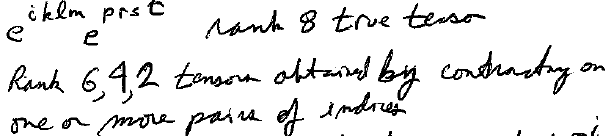 e^{iklm} e^{prst} rank 8 true tensor
Rank 6,4,2 tensors obtained by contracting on
one or more pairs of indices